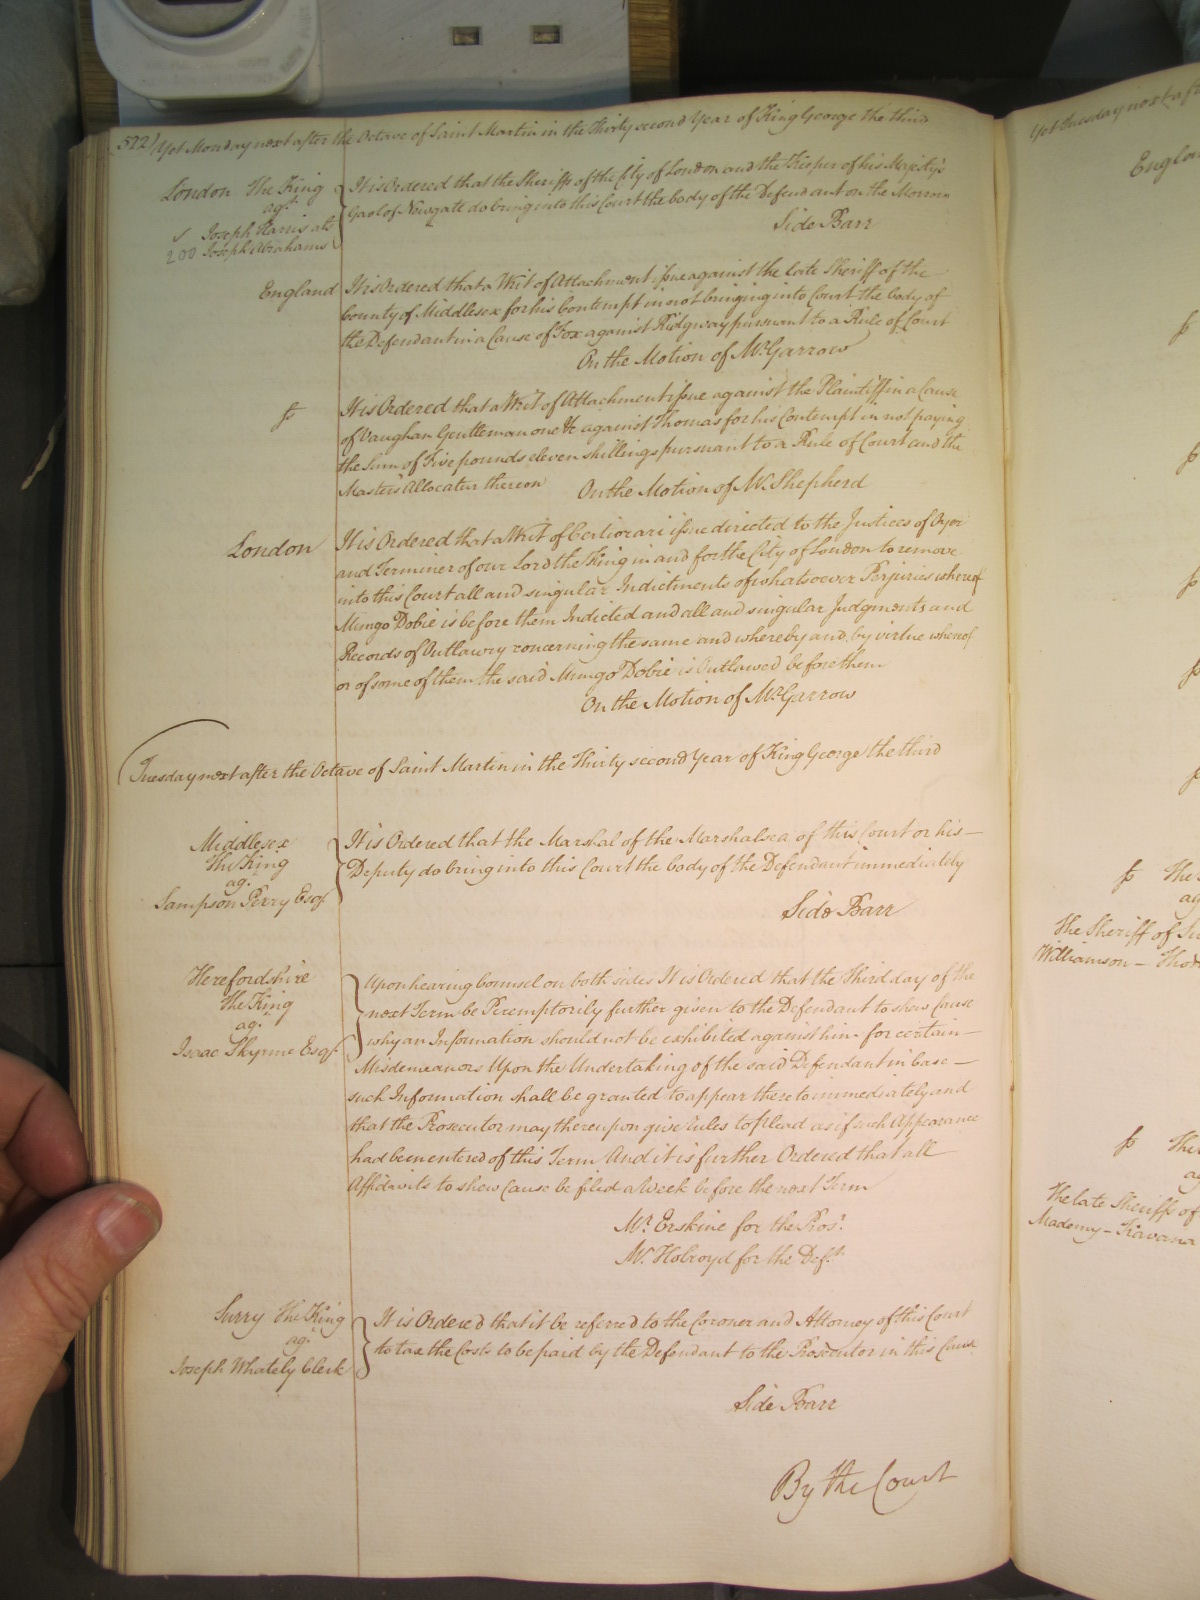 522) Yet Monday next after the Octave of Saint Martin in the Thirty second Year of King George the third
London The King
agt
Joseph Harris als
200 Joseph Abrahams
It is Ordered that the Sheriffs of the City of London and the Keeper of his Majesty's
Gaol of Newgate do bring into this Court the body of the Defendant on the Morrow
Side Barr
England
It is Ordered that a Writ of Attachment issue against the late Sheriff of the
County of Middlesex for his Contempt in not bringing into Court the body of
the Defendant in a Cause of Fox against Ridgway pursuant to a Rule of Court
On the Motion of Mr. Garrow
It is Ordered that a Writ of Attachment issue against the Plaintiff in a Cause
of Vaughan Gentleman one &c against Thomas for his Contempt in not paying
the Sum of Five pounds eleven shillings pursuant to a Rule of Court and the
Master's Allocatur thereon On the Motion of Mr. Shepherd
London
It is Ordered that a Writ of Certiorari issue directed to the Justices of Oyer
and Terminer of our Lord the King in and for the City of London to remove
into this Court all and singular Indictments of whatsoever Perjuries whereof
Mungo Dobie is before them Indicted and all and singular Judgments and
Records of Outlawry concerning the same and whereby and by virtue whereof
or of some of them the said Mungo Dobie is Outlawed before them
On the Motion of Mr. Garrow
Tuesday next after the Octave of Saint Martin in the Thirty second Year of King George the third
Middlesex
The King
ag.
Sampson Perry Esqr.
It is Ordered that the Marshal of the Marshalsea of this Court or his –
Deputy do bring into this Court the body of the Defendant immediately
Side Barr
Herefordshire
The King
ag.
Isaac Skyrme Esqr.
Upon hearing Counsel on both sides It is Ordered that the Third day of the
next Term be Peremptorily further given to the Defendant to shew Cause
why an Information should not be exhibited against him for certain –
Misdemeanors Upon the Undertaking of the said Defendant in Case –
such Information shall be granted to appear thereto immediately and
that the Prosecutor may thereupon give Rules to plead as if such Appearance
had been entered of this Term And it is further Ordered that all
Affidavits to shew Cause be filed a Week before the next Term
Mr. Erskine for the Pros.
Mr. Holroyd for the Deft.
Surry The King
agt
Joseph Whately Clerk
It is Ordered that it be referred to the Coroner and Attorney of this Court
to tax the Costs to be paid by the Defendant to the Prosecutor in this Cause
Side Barr
By the Court
Yet Tuesday next
The Sheriff of
Williamson –
The late Sheriffs of